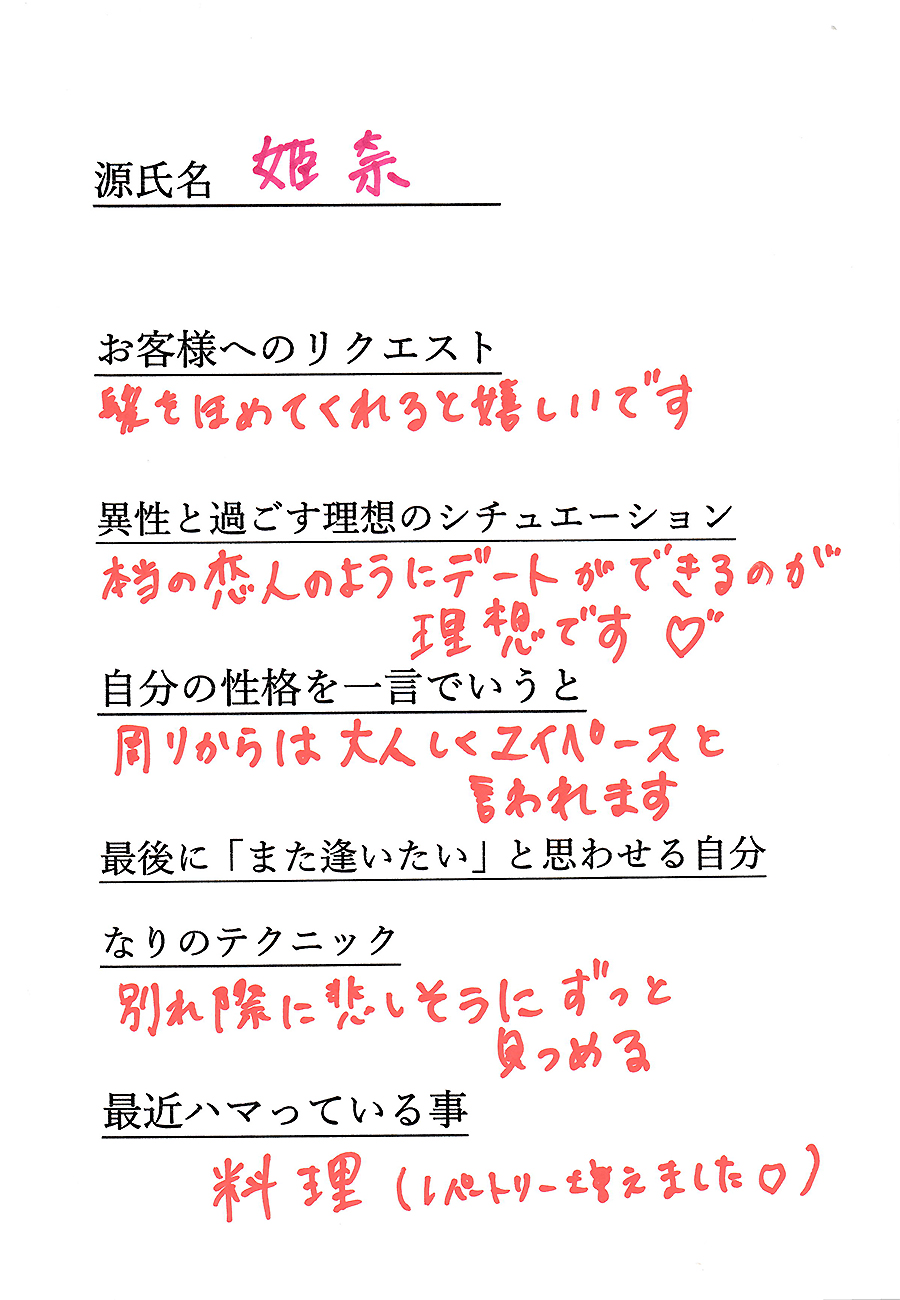 源氏名 姫奈
お客様へのリクエスト
髪をほめてくれると嬉しいです
異性と過ごす理想のシチュエーション
本当の恋人のようにデートができるのが
理想です♡
自分の性格を一言でいうと
周りからは大人しくマイペースと
言われます
最後に「また逢いたい」と思わせる自分
なりのテクニック
別れ際に悲しそうにずっと
見つめる
最近ハマっている事
料理(レパートリー増えました♡)